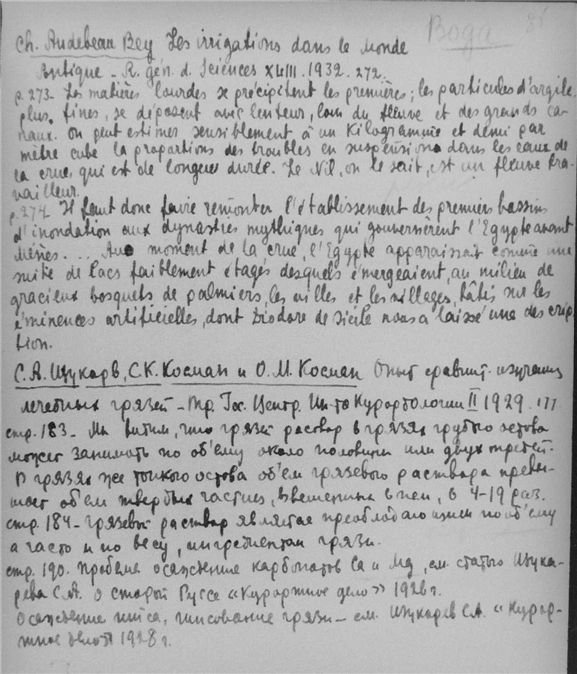 Вода 85
Ch. Audebeau Bey Les irrigations dans le Monde
Antique – R. gén. d. Sciences XLIII. 1932. 272.
p. 273– Les matières lourdes se précipitent les premières; les particules d'argile,
plus fines, se déposent avec lenteur, loin du fleuve et des grands ca-
naux. On peut estimer sensiblement à un kilogramme et demi par
mètre cube la proportions des troubles en suspensions dans les eaux de
la crue, qui est de longue durée. Le Nil, on le sait, est un fleuve tra-
vailleur.
p. 274. Il faut donc faire remonter l'établissement des premiers bassins
d'inondation aux dynastres mythiques qui gouvernèrent l'Egypte avant
Ménès. ... Au moment de la crue, l'Egypte apparaissait comme une
suite de lacs faiblement étagés desquels émergeaient, au milieu de
gracieux bosquets de palmiers, les villes et les villages, bâtis sur les
éminences artificielles, dont Diodore de Sicile nous a laissé une des crip
tion.
С. А. Щукарв, С.К. Косман и О. М. Косман Опыт сравнит. изучения
лечебных грязей – Тр. Гос. Центр. Ин-та Курортологии II 1929. 177
стр. 183– Мы видим, что грязев раствор в грязях грубого остова
может занимать по об'ему около половины или двух третей.
В грязях же тонкого остова об'ем грязевого раствора превы-
шает об'ем твердых частиц, взвешенных в нем, в 4-19 раз.
стр. 184– грязевой раствор является преобладающим по об'ему
а часто и по весу, ингредиентом грязи.
стр. 190. Проблема осаждение карбонатов Ca и Mg, см. статью Щука-
рева С.А. О старой Руссе «Курортное дело» 1926 г.
Осаждение гипса, гипсование грязи – см. Щукарев С.А. "Курор-
тное дело" 1928 г.